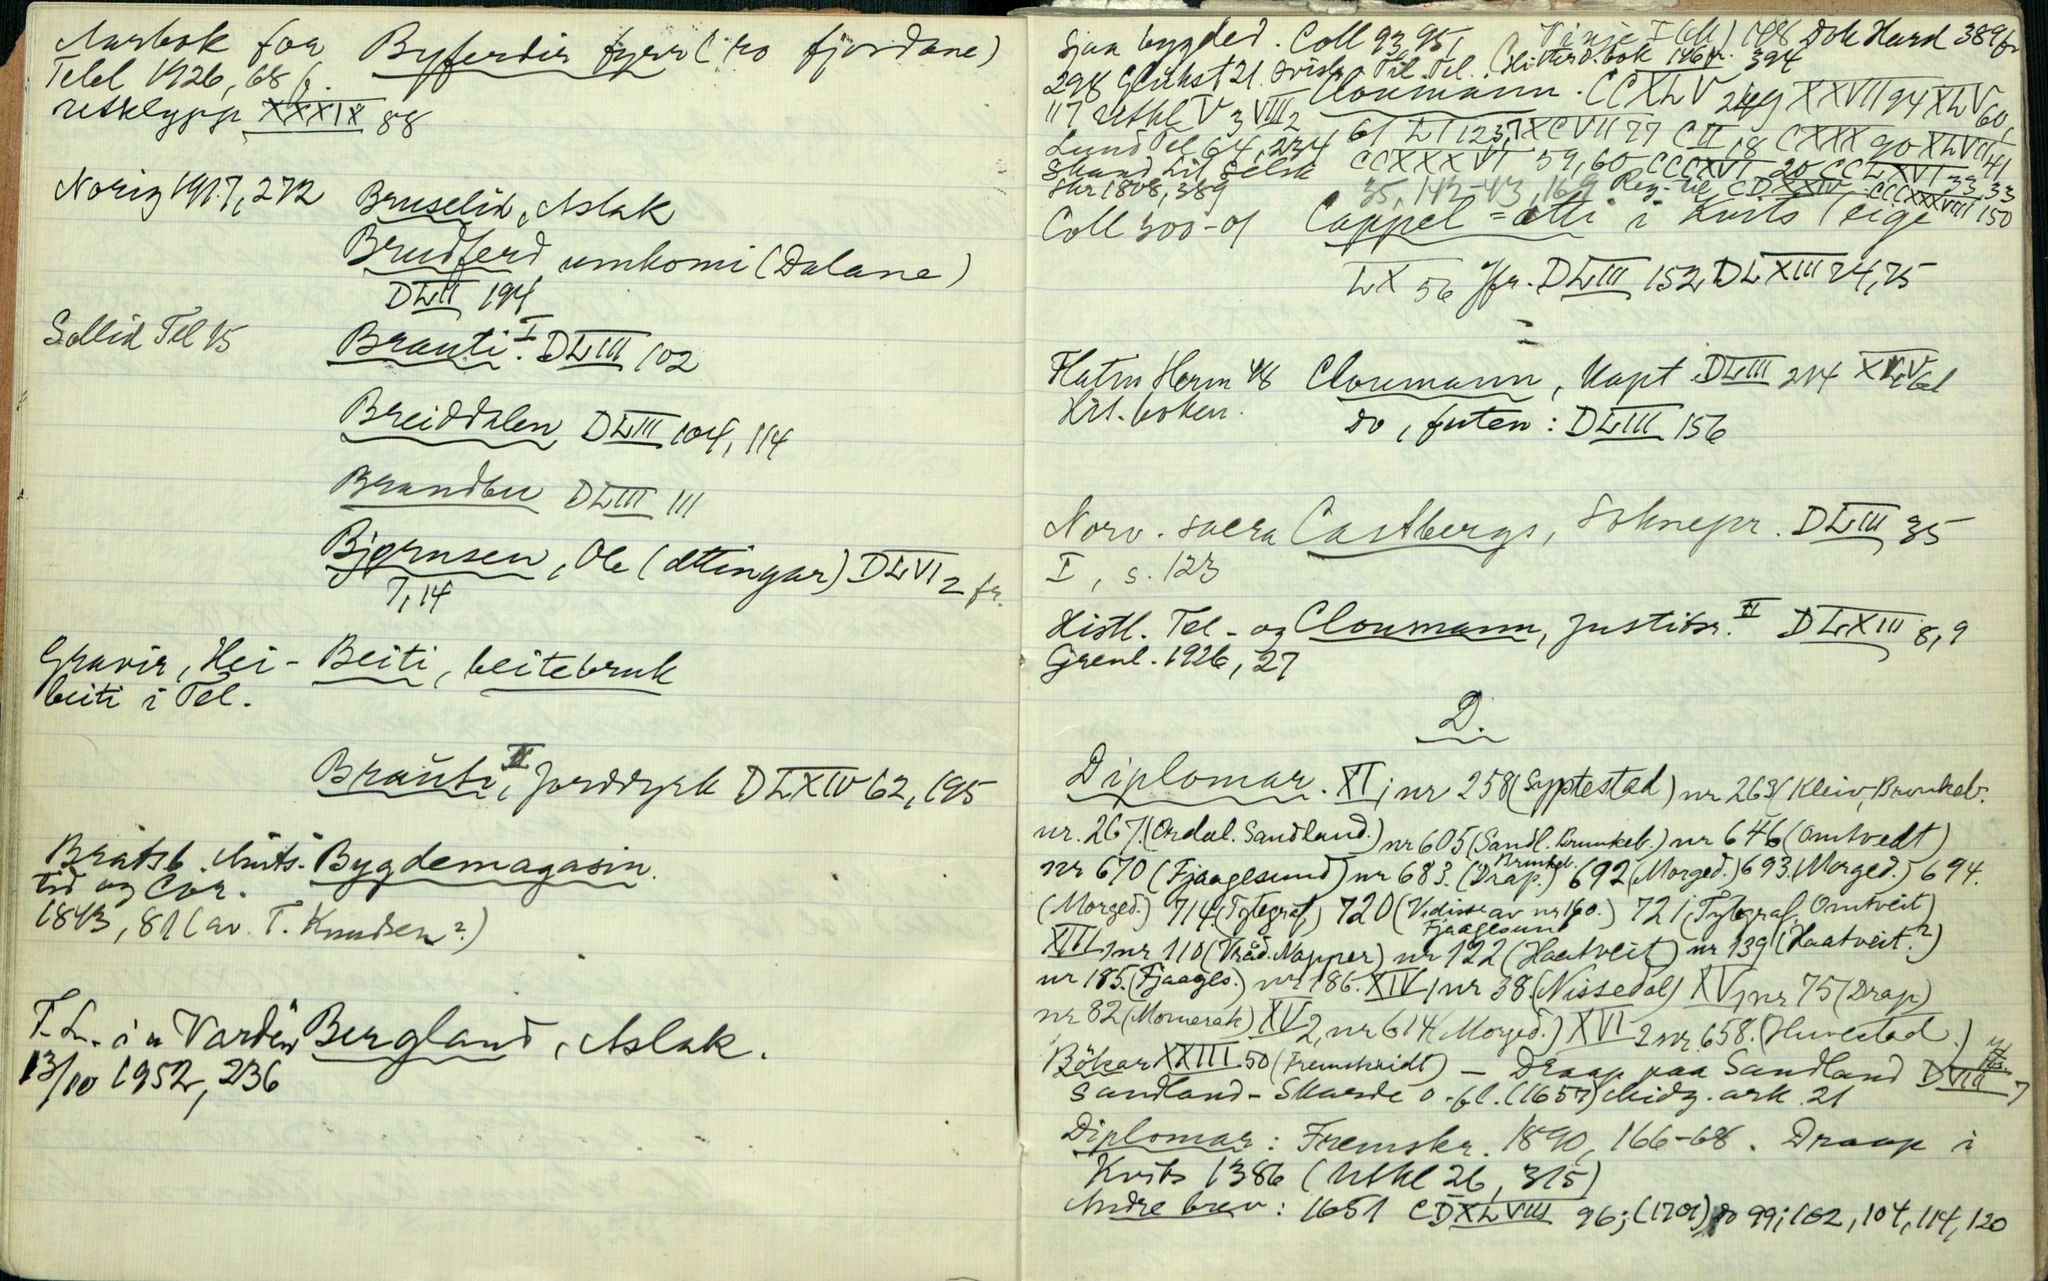 Aarbok for Byferdir fyrr (ro fjordane)
Telel 1926, 68 f.
Utklypp XXXIX 88
Noreg 1917, 272 Bruselid, Aslak
Brudferd umkomi (Dalane)
DLII 194
Sollid Tel 15 Brauti I. DLIII 102
Breiddalen DLIII 104, 114
Brandbu DLIII 111
Bjørnsen, Ole (ættingar) DLVI 2 fr.
7, 14
Gravir, Hei- Beiti, beitebruk
beiti i Tel.
Brauti II, jorddyrk DLXIV 62, 195
Bratsb. Amts- Bygdemagasin.
tid og Cor.
1843, 81 (av T. Knudsen?)
T. L. i "Varden" Bergland, Aslak.
13/10 1952, 236
Sjaa bygded. Coll 93, 95, Vinje I 148 Dok Hard 389 fr
298 21. Til. Tel. 146 fr. 394
117 Utkl V 3 VIII 2 Cloumann. CCXLV 249 XXVII 94 XLV 60,
Lund Tel 64, 234 61 LI 123, XCVII 77 CII, 8 CXXX 90 XLVII 41
Skand Lit Selsk CCXXXVI 59, 60 CCCXVI 20 CCLXVI 33, 33
Skr 1808, 389 35, 142-43, 169 CDXXIV CCCXXXVIII 150
Coll 300-01 Cappel = ætti i Kvits eige
LX 56 Jfr. DLIII 152, DLXIII 74, 75
Flatin Herm 48 Cloumann, Kapt DLIII 214 XLV 61
Hist. boken. do, futen: DLIII 156
Norv. sacra Castbergs, Soknepr. DLIII 35
I, s. 123
Histl. Tel- og Cloumann, justitsr. II DLXIII 8, 9
Grenl. 1926, 27
D.
Diplomar. XI, nr 258 (Syptestad) nr 263 (Kleiv, Brunkeb.
nr. 267. (Ordal. Sandland.) nr 605 (Sandl. Brunkeb.) nr 646 (Omtvedt)
nr 670 (Fjaagesund) nr 683. (Drap. Brunkeb.) 692 (Morged.) 693. (Morged.) 694.
(Morged.) 714. (Tytegraf) 720 (Vidisse av nr 160. Fjaagesund) 721, (Tytegraf, Omtveit)
XIII, nr 110 (Vråd. Napper) nr 122 (Haatveit) nr 139 (Haatveit?)
nr 185. (Fjaages.) nr 186. XIV, nr 38. (Nissedal) XV, nr 75 (Drap)
nr 82 (Momerak) XV 2, nr 614 (Morged.) XVI 2 nr. 658. (Huvestad.)
Bökar XXIII 50 (Fremskridt) – Draap paa Sandland DVIII 7
Sandland - Skarde o. fl. (1657) Midg. ark 21
Diplomar: Fremskr. 1890, 166-68. Draap i
Kvits 1386 (Utkl 26, 315)
Andre brev: 1651 CDXLVIII 96; (1701) do 99; 102, 104, 114, 120